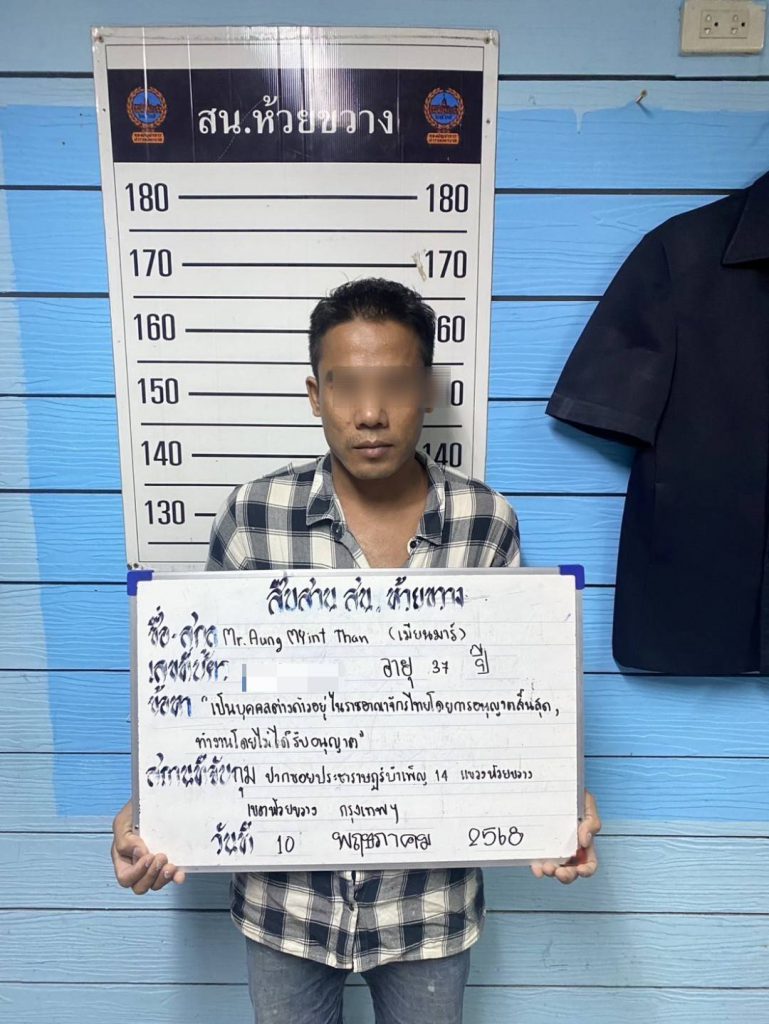 สน.ห้วยขวาง
180 180
170 170
160 60
150 0
140 140
130
สืบสวน สน. ห้วยขวาง
ชื่อ-สกุล Mr. Aung Myint Than (เมียนมาร์)
เลขที่บัตร อายุ 37 ปี
ข้อหา "เป็นบุคคลต่างด้าวอยู่ในราชอาณาจักรไทยโดยการอนุญาตสิ้นสุด,
ทำงานโดยไม่ได้รับอนุญาต"
สถานที่จับกุม ปากซอยประชาราษฎร์บำเพ็ญ 14 แขวงห้วยขวาง
เขตห้วยขวาง กรุงเทพฯ
วันที่ 10 พฤษภาคม 2568